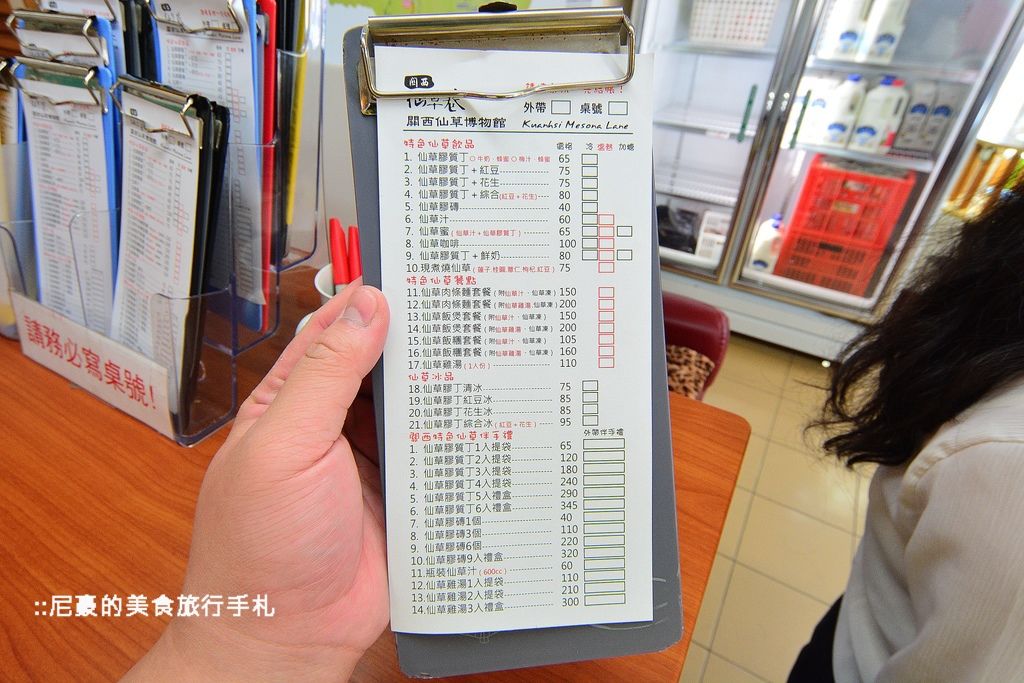 關西
仙草巷
外帶 桌號
關西仙草博物館 Kuanhsi Mesona Lane
特色仙草飲品 價格 冷 溫熱 加糖
1. 仙草膠質丁○牛奶、蜂蜜○梅汁、蜂蜜 65
2. 仙草膠質丁+紅豆 75
3. 仙草膠質丁+花生 75
4. 仙草膠質丁+綜合(紅豆+花生) 80
5. 仙草膠磚 40
6. 仙草汁 60
7. 仙草蜜(仙草汁+仙草膠質丁) 65
8. 仙草咖啡 100
9. 仙草膠質丁+鮮奶 80
10.現煮燒仙草(蓮子.桂圓.薏仁.枸杞.紅豆) 75
特色仙草餐點
11.仙草肉條麵套餐(附仙草汁、仙草凍) 150
12.仙草肉條麵套餐(附仙草雞湯.仙草凍) 200
13.仙草飯煲套餐(附仙草汁、仙草凍) 150
14.仙草飯煲套餐(附仙草雞湯、仙草凍) 200
15.仙草飯糰套餐(附仙草汁、仙草凍) 105
16.仙草飯糰套餐(附仙草雞湯、仙草凍) 160
17.仙草雞湯(1人份) 110
仙草冰品
18.仙草膠丁清冰 75
19.仙草膠丁紅豆冰 85
20.仙草膠丁花生冰 85
21.仙草膠丁綜合冰(紅豆+花生) 95
關西特色仙草伴手禮 外帶伴手禮
1. 仙草膠質丁1人提袋 65
2. 仙草膠質丁2人提袋 120
3. 仙草膠質丁3人提袋 180
4. 仙草膠質丁4人提袋 240
5. 仙草膠質丁5人禮盒 290
6. 仙草膠質丁6人禮盒 345
7. 仙草膠磚1個 40
8. 仙草膠磚3個 110
9. 仙草膠磚6個 220
10.仙草膠磚9人禮盒 320
11.瓶裝仙草汁(600cc) 60
12.仙草雞湯1人提袋 110
13.仙草雞湯2人提袋 210
14.仙草雞湯3人禮盒 300
請務必寫桌號!
::尼豪的美食旅行手札